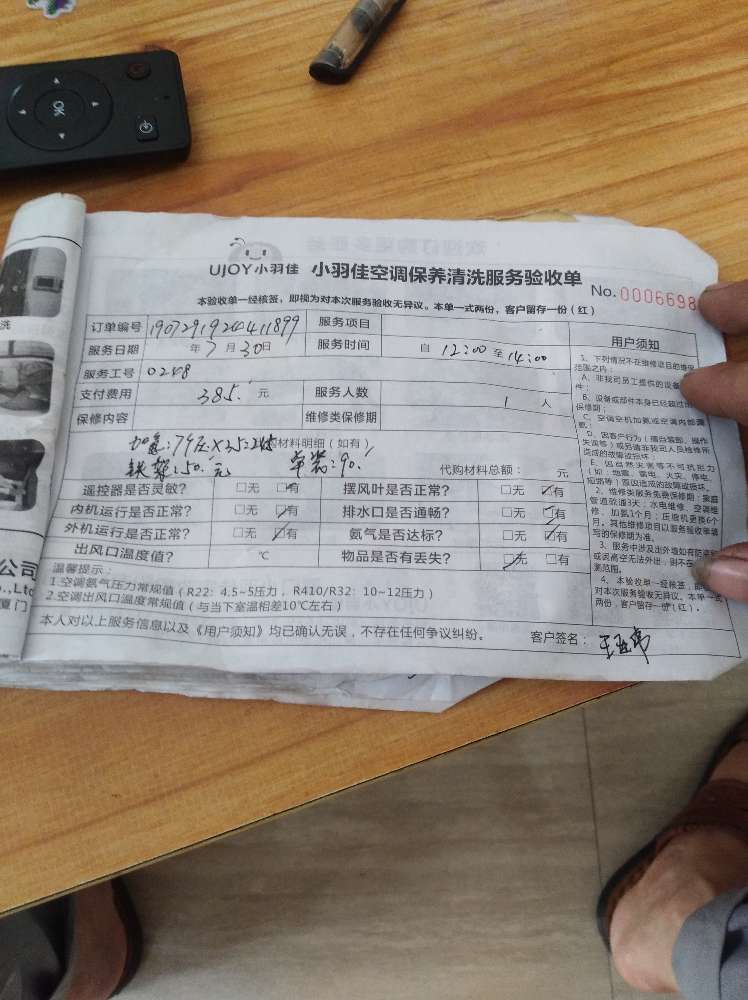 OK
UJOY小羽佳 小羽佳空调保养清洗服务验收单
No. 0006698
本验收单一经核签，即视为对本次服务验收无异议。本单一式两份，客户留存一份（红）
订单编号 190729192441899 服务项目
服务日期 年7月30日 服务时间 自 12:00 至 14:00
服务工号 0248
支付费用 385. 元 服务人数 1 人
保修内容 维修类保修期
加氨:7个压X35=245 材料明细（如有）
铁架:50.元 单装:90. 代购材料总额： 元
遥控器是否灵敏？ □无 □有 摆风叶是否正常？ □无 □有
内机运行是否正常？ □无 □有 排水口是否通畅？ □无 □有
外机运行是否正常？ □无 □有 氨气是否达标？ □无 □有
出风口温度值？ ℃ 物品是否有丢失？ □无 □有
温馨提示：
1.空调氨气压力常规值（R22：4.5~5压力， R410/R32：10~12压力）
2.空调出风口温度常规值（与当下室温相差10℃左右）
本人对以上服务信息以及《用户须知》均已确认无误，不存在任何争议纠纷。 客户签名：
用户须知
1、下列情况不在维修项目的维保
范围之内：
A、非我司员工提供的设备
件；
B、设备或部件本身已经超过
保修期；
C、空调空机加氨或空调内部
D、因客户行为（擅自装卸、操作
失误等）或另请非我司人员检修所
造成的故障或损坏；
E、因自然灾害等不可抗拒力
（如：地震、雷电、火灾、停电、
短路等）原因造成的故障或损坏。
2、维修类服务免费保修期：家庭
管道疏通3天；水电维修、空调维
修、加氨1个月；压缩机更换6个
月。其他维修项目以服务验收单填
写的保修期为准。
3、服务中涉及出外墙如有防盗
或波高空无法外出，则不在
范围。
4、本验收单一经核签，
对本次服务验收无异议。本单一式
两份，客户留存一份（红）。
公司
o.,Ltd
厦门
洗